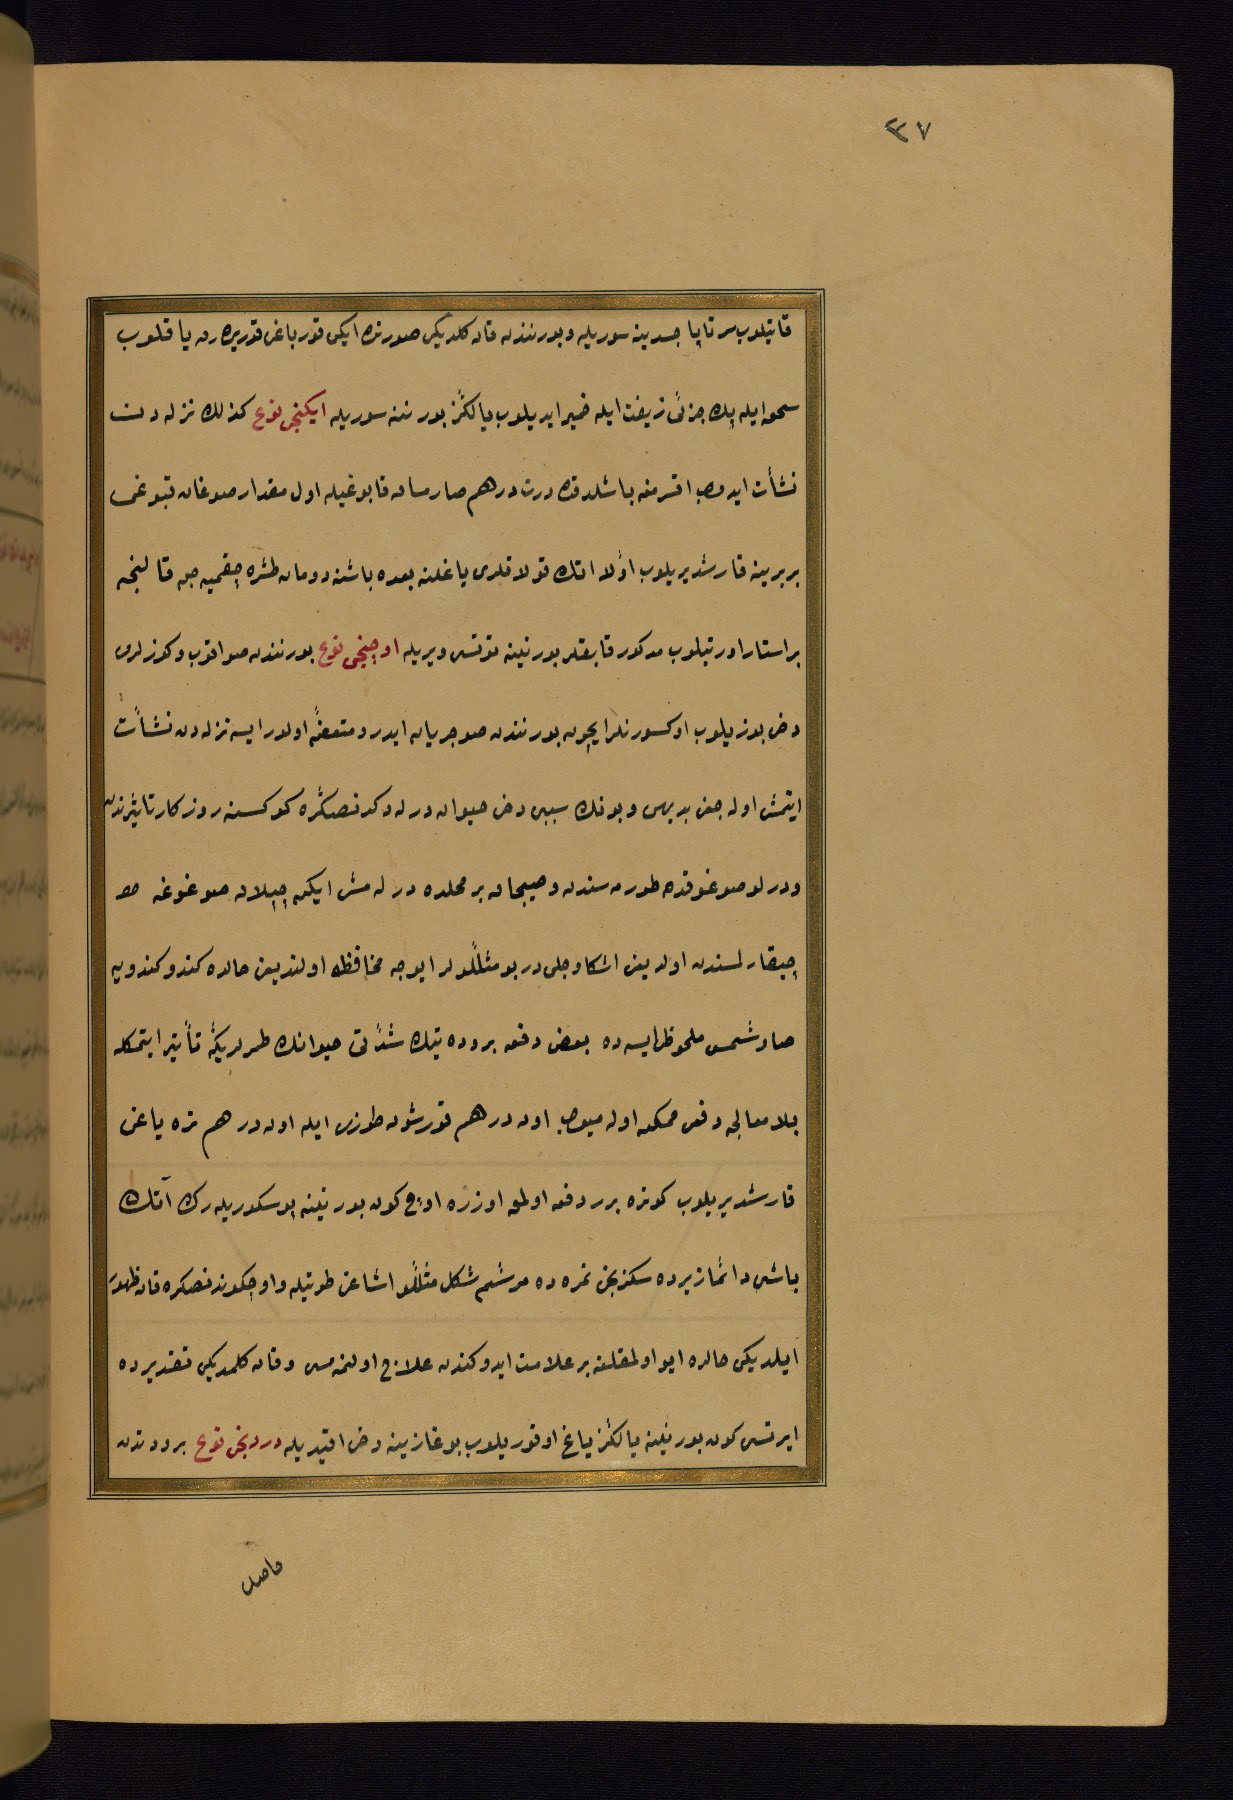 ٣٧
قاتیلوب سرتاپا جسدینه سوریله و بورنندن قان کلدیکی صورتده ایکی قوربا غی قوریده رق یاقلوب
سحق ایله پك جزئی زیفت ایله خمیر ایدیلوب یالکز بورننه سوریله ایکنجی نوع کذلك نزله دن
نشأت ایدوب اقسرمغه باشلدقده درت درهم صارمساق قابوغیله اول مقدار صوغان قبوغی
بربرینه قارشدیریلوب اوّلا اتك قولاقلری یاغلنه بعده باشنه دومان طشره چقمیه جق قالنجه
بر استار اورتیلوب مذکور قابقلر بورنینه توتسی ویریله اوچنجی نوع بورنندن صو اقوب وکوزلری
دخی بوزیلوب اوکسورنلر ایچون بورنندن صو جریان ایدر و متعفّن اولور ایسه نزله دن نشأت
ایتمش اوله جغی بدیهی و بونك سببی دخی حیوان درلدکدنصکره کوکسنه روزکار تاثیرندن
ودرلو صوغوقده طورمه سندن وهیجان بر محلده درله مش ایکن چپلاق صوغوغه
چیقارلمسندن اولدیغی اشکار وجلی در بو مثللولر ایوجه محافظه اولندیغی حالده کندو کندویه
صاوشمسی ملحوظ ایسه ده بعض دفعه برودتیك شدّتی حیوانك طمرلریکه تأثیر ایتمکله
بلا معالجه دفعی ممکن اوله میوب اون درهم قورشون طوزی ایله اون درهم تره یاغی
قارشدیریلوب کونده برر دفعه اولمق اوزره اوچ کون بورنینه پوسکوریله رك آتك
باشی دائما زیرده سکزنجی نمره ده مرسم شکل مثللو اشاغی طوتیله و اوچکوندنصکره قان ظهور
ایلدیکی حالده ایو اولمقلغه بر علامت ایدوکندن علاج اولنمه سی وقان کلمدیکی تقدیرده
ایرتسی کون بورنینه یالکز یاغ اوفوریلوب بوغازینه دخی اقیدیله دردنجی نوع برودتدن
حاصل